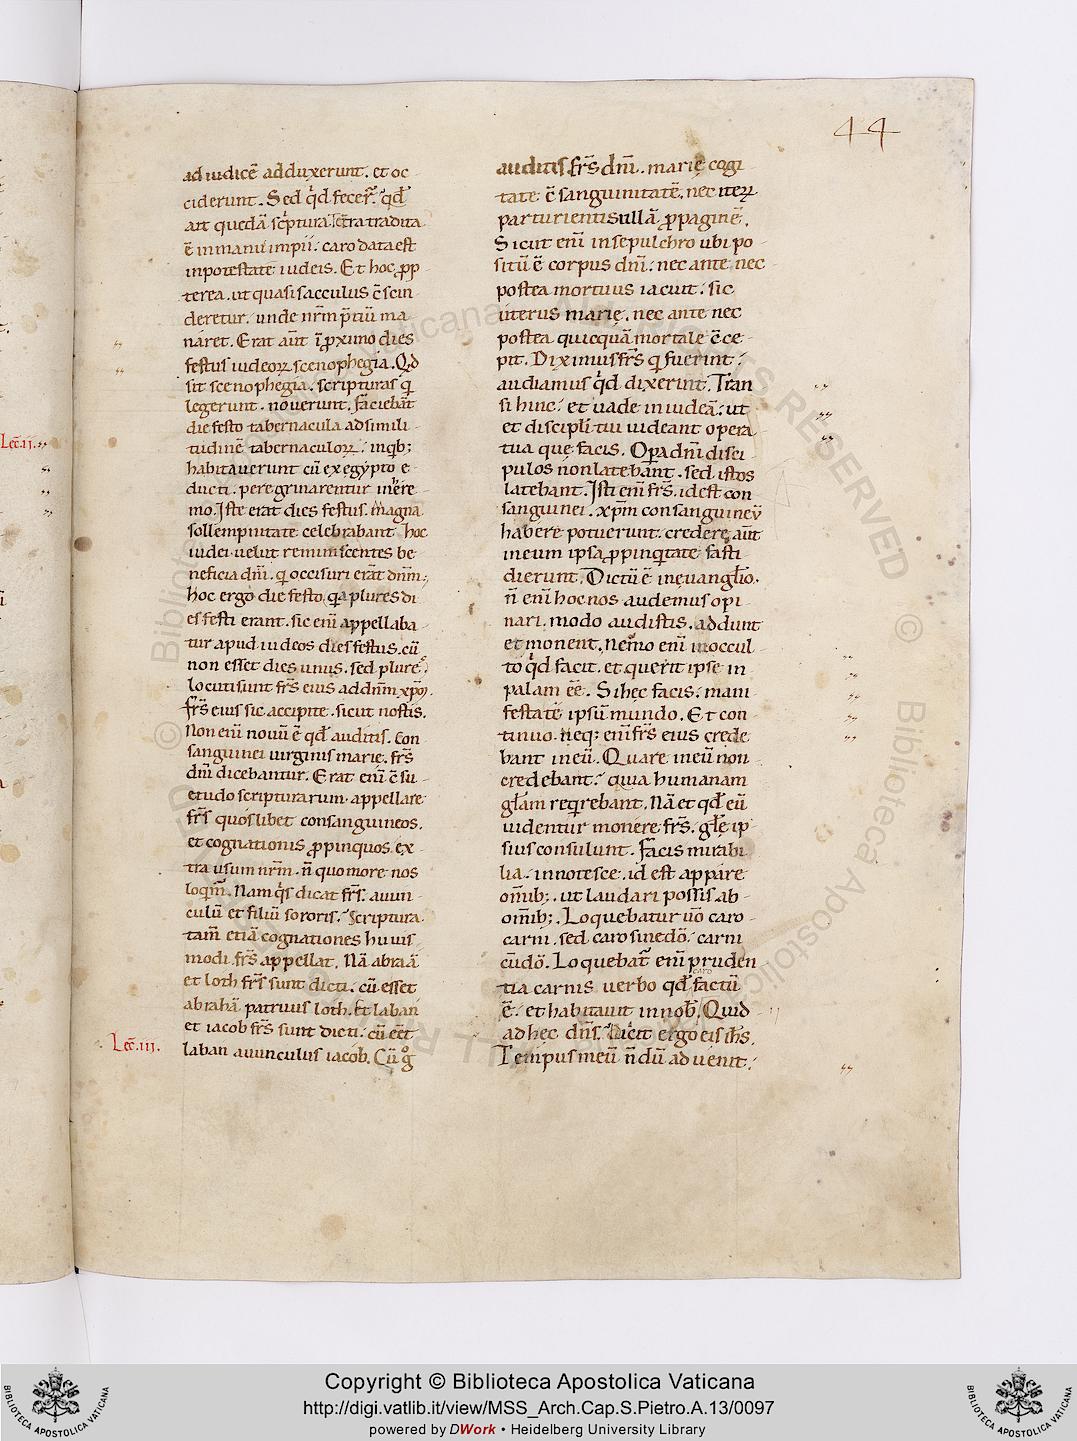 44
ad iudicē adduxerunt. et oc
ciderunt. Sed qd̄ fecer̄. qd̄
ait quedā sc̄ptura. Tēra tradita
ē in manu impii. caro data est
in potestate iudeis. Et hoc prop
terea. ut quasi sacculus cōscin
deretur. unde nr̄m p̄tiū ma
naret. Erat aūt ī proximo dies
festus iudeoꝝ scenophegia. Qd̄
sit scenophegia. scripturas qi
legerunt. noverunt. Faciebāt
die festo tabernacula ad simili
tudinē tabernaculoꝝ. in qb;
habitaverunt cū ex egypto e
ducti. peregrinarentur in ere
mo. Iste erat dies festus. magna
sollempnitate celebrabant hoc
iudei. velut reminiscentes be
neficia dn̄i. qi occisuri erāt dnm̄;
hoc ergo die festo. qa plures di
es festi erant. sic enī appellaba
tur apud iudeos dies festus. cū
non esset dies unus. sed plures.
locuti sunt fr̄s eius ad dn̄m xp̄m.
fr̄s eius sic accipite. sicut nostis.
Non enī novū ē qd̄ auditis. Con
sanguinei virginis marie. fr̄s
dn̄i dicebantur. Erat enī cōsu
etudo scripturarum. appellare
fr̄s quoslibet consanguineos.
et cognationis propinquos. ex
tra usum nr̄m. n̄ quo more nos
loqm̄r. Nam qis dicat fr̄s. avun
culū et filiū sororis. Scriptura
tam̄ etiā cognationes huius
modi. fr̄s appellat. Nā abraā
et loth fr̄s sunt dicti. cū esset
abrahā patruus loth. Et laban
et iacob fr̄s sunt dicti. cū eēt
Lec̄.iii.
laban avunculus iacob. Cū gͦ
auditis fr̄s dn̄i. marię cogi
tate cōsanguinitatē. nec iteꝝ
parturientis ullā propaginē.
Sicut enī in sepulchro ubi po
sitū ē corpus dn̄i. nec ante nec
postea mortuus iacuit. sic
uterus marię. nec ante nec
postea quicquā mortale cōce
pit. Diximus fr̄s qi fuerint.
audiamus qd̄ dixerint. Tran
si hinc. et vade in iudeā. ut
et discipli tui videant opera
tua que facis. Opera dn̄i disci
pulos non latebant. sed istos
latebant. Isti enī fr̄s. id est con
sanguinei. xp̄m consanguineū
habere potuerunt. credere aūt
in eum ipsa propinqitate fasti
dierunt. Dictū ē in evanglīo.
n̄ enī hoc nos audemus opi
nari. modo audistis. addunt
et monent. Nemo enī in occul
to qd̄ facit. et querit ipse in
palam eē. Si hec facis. mani
festate ipsū mundo. Et con
tinuo. neq; enī fr̄s eius crede
bant in eū. Quare in eū non
credebant. quia humanam
gl̄am reqirebant. Nā et qd̄ eū
videntur monere fr̄s. gl̄ę ip
sius consulunt. Facis mirabi
lia. innotesce. id est appare
om̄ib;. ut laudari possis ab
om̄ib;. Loquebatur ūo caro
carni. sed caro sine dō. carni
cū dō. Loquebat̄ enī pruden
tia carnis verbo qd̄ caro factū
ē. et habitavit in nob̄. Quid
ad hec dn̄s. Dicit ergo eis ih̄s.
Tempus meū n̄dū advenit.
Lec̄.ii.
Copyright © Biblioteca Apostolica Vaticana
http://digi.vatlib.it/view/MSS_Arch.Cap.S.Pietro.A.13/0097
powered by DWork • Heidelberg University Library